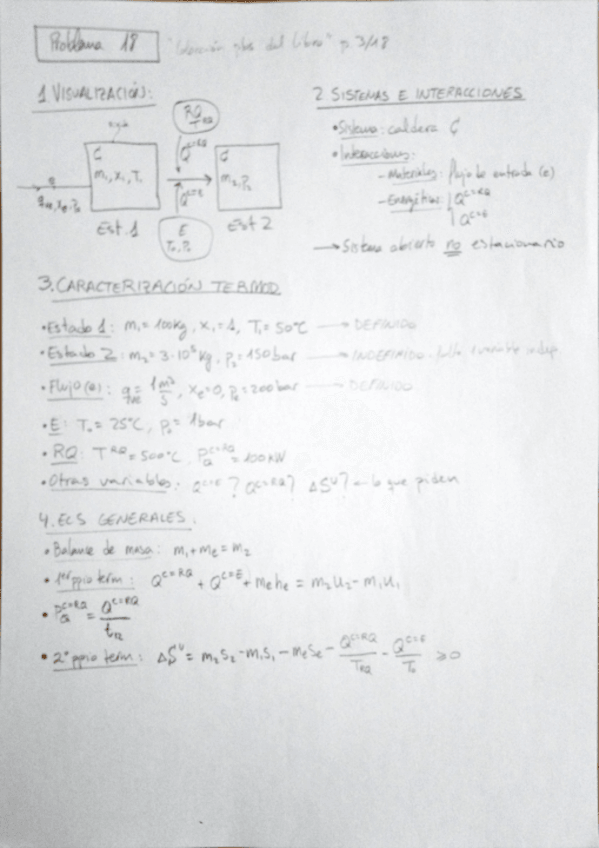 Problema 18 " del libro" p. 3/18
1. VISUALIZACIÓN:
RQ
T_RQ
Q^C=RQ
C
m₁, x₁, T₁
Est. 1
C
m₂, P₂
Est 2
Q^C=E
E
T₀, P₀
e
2 SISTEMAS E INTERACCIONES
• Sistema: caldera C
• Interacciones:
- Materiales: flujo de entrada (e)
- Energéticas: Q^C=RQ
Q^C=E
→ Sistema abierto no estacionario
3. CARACTERIZACIÓN TERMOD.
• Estado 1: m₁ = 100 kg, x₁ = 1, T₁ = 50°C → DEFINIDO
• Estado 2: m₂ = 3·10⁵ kg, P₂ = 150 bar → INDEFINIDO falta 1 variable indep.
• Flujo (e): = 1 m³/s, x_e = 0, P_e = 200 bar → DEFINIDO
• E: T₀ = 25°C, P₀ = 1 bar
• RQ: T^RQ = 500°C, P_Q^C=RQ = 100 kW
• Otras variables: Q^C=E? Q^C=RQ? ΔS^U? ← lo que piden
4. ECS GENERALES.
• Balance de masa: m₁ + m_e = m₂
• 1er ppio term: Q^C=RQ + Q^C=E + m_e h_e = m₂u₂ - m₁u₁
• P_Q^C=RQ = Q^C=RQ / t₁₂
• 2º ppio term: ΔS^U = m₂s₂ - m₁s₁ - m_e s_e - Q^C=RQ/T_RQ - Q^C=E/T₀ ≥ 0